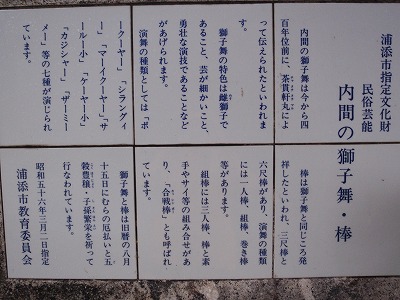 浦添市指定文化財
民俗芸能
内間の獅子舞・棒
内間の獅子舞は今から四
百年位前に、茶貫軒丸によ
って伝えられたといわれま
す。
獅子舞の特色は雌獅子で
あること、芸が細かいこと、
勇壮な演技であることなど
があげられます。
演舞の種類としては「ボ
ークーヤー」「シランディ
ー」「マーイクーヤー」「サ
ールー小」「ケーヤー小」
「カジシャー」「ザーミー
メー」等の七種が演じられ
ています。
棒は獅子舞と同じころ発
祥したといわれ、三尺棒と
六尺棒があり、演舞の種類
には一人棒、組棒、巻き棒
等があります。
組棒には三人棒、棒と素
手やサイ等の組み合せがあ
り、「合戦棒」とも呼ばれ
ています。
獅子舞と棒は旧暦の八月
十五日にむらの厄払いと五
穀豊穣・子孫繁栄を祈って
行なわれています。
昭和五十六年三月二日指定
浦添市教育委員会